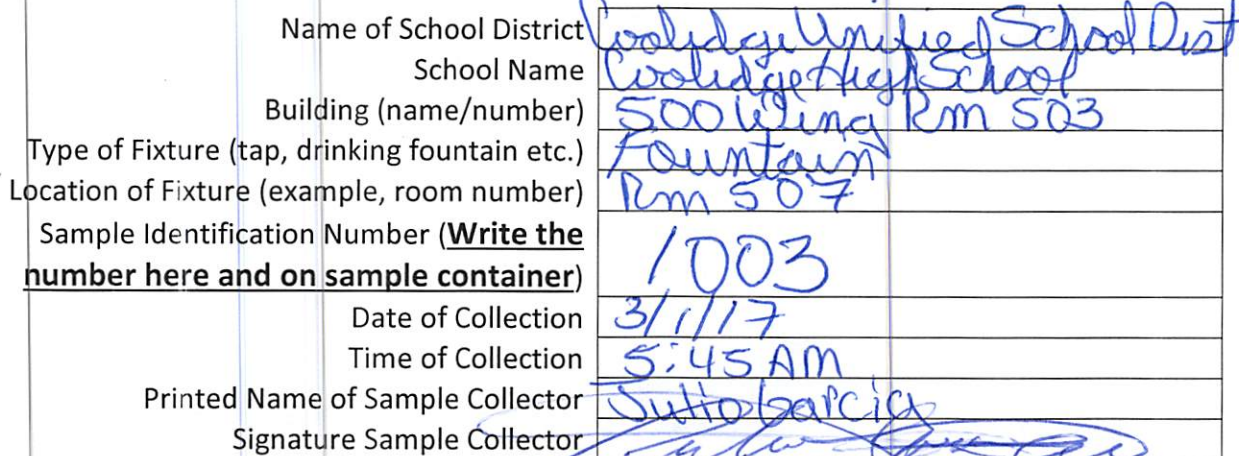 Name of School District Coolidge Unified School Dist
School Name Coolidge High School
Building (name/number) 500 Wing Rm 503
Type of Fixture (tap, drinking fountain etc.) Fountain
Location of Fixture (example, room number) Rm 507
Sample Identification Number (Write the
number here and on sample container) 1003
Date of Collection 3/1/17
Time of Collection 5:45 AM
Printed Name of Sample Collector Garcia
Signature Sample Collector